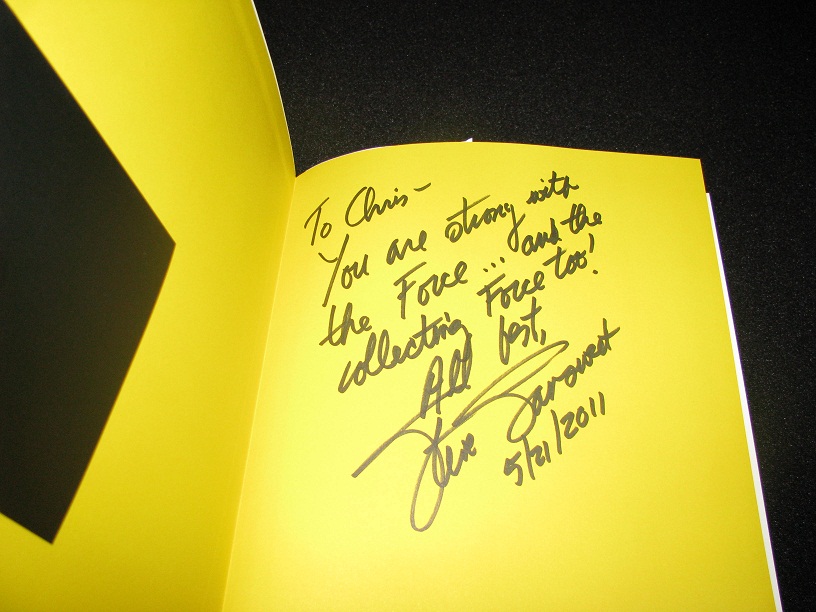 To Chris-
You are strong with
the Force... and the
collecting Force too!
All best,
Steve Sansweet
5/21/2011